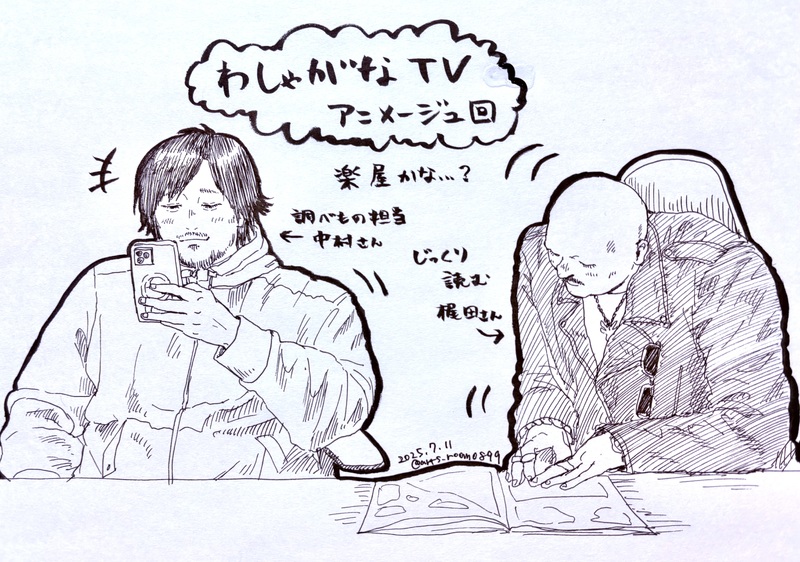 わしゃがなTV
アニメージュ回
楽屋かな…?
調べもの担当
← 中村さん
じっくり
読む
梶田さん
2025.7.11
@arts_room0899